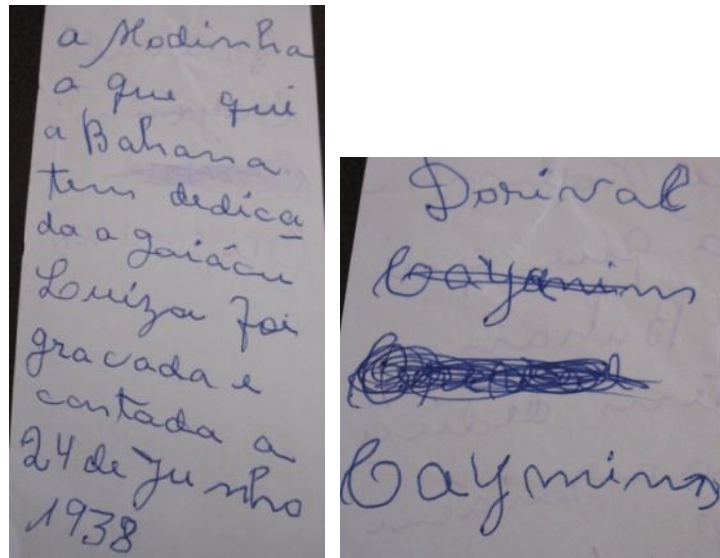 a Modinha
o que qui
a Bahana
tem dedica
da a gaiácu
Luiza foi
gravada e
cantada a
24 de Junho
1938
Dorival
Caymin
Caymin